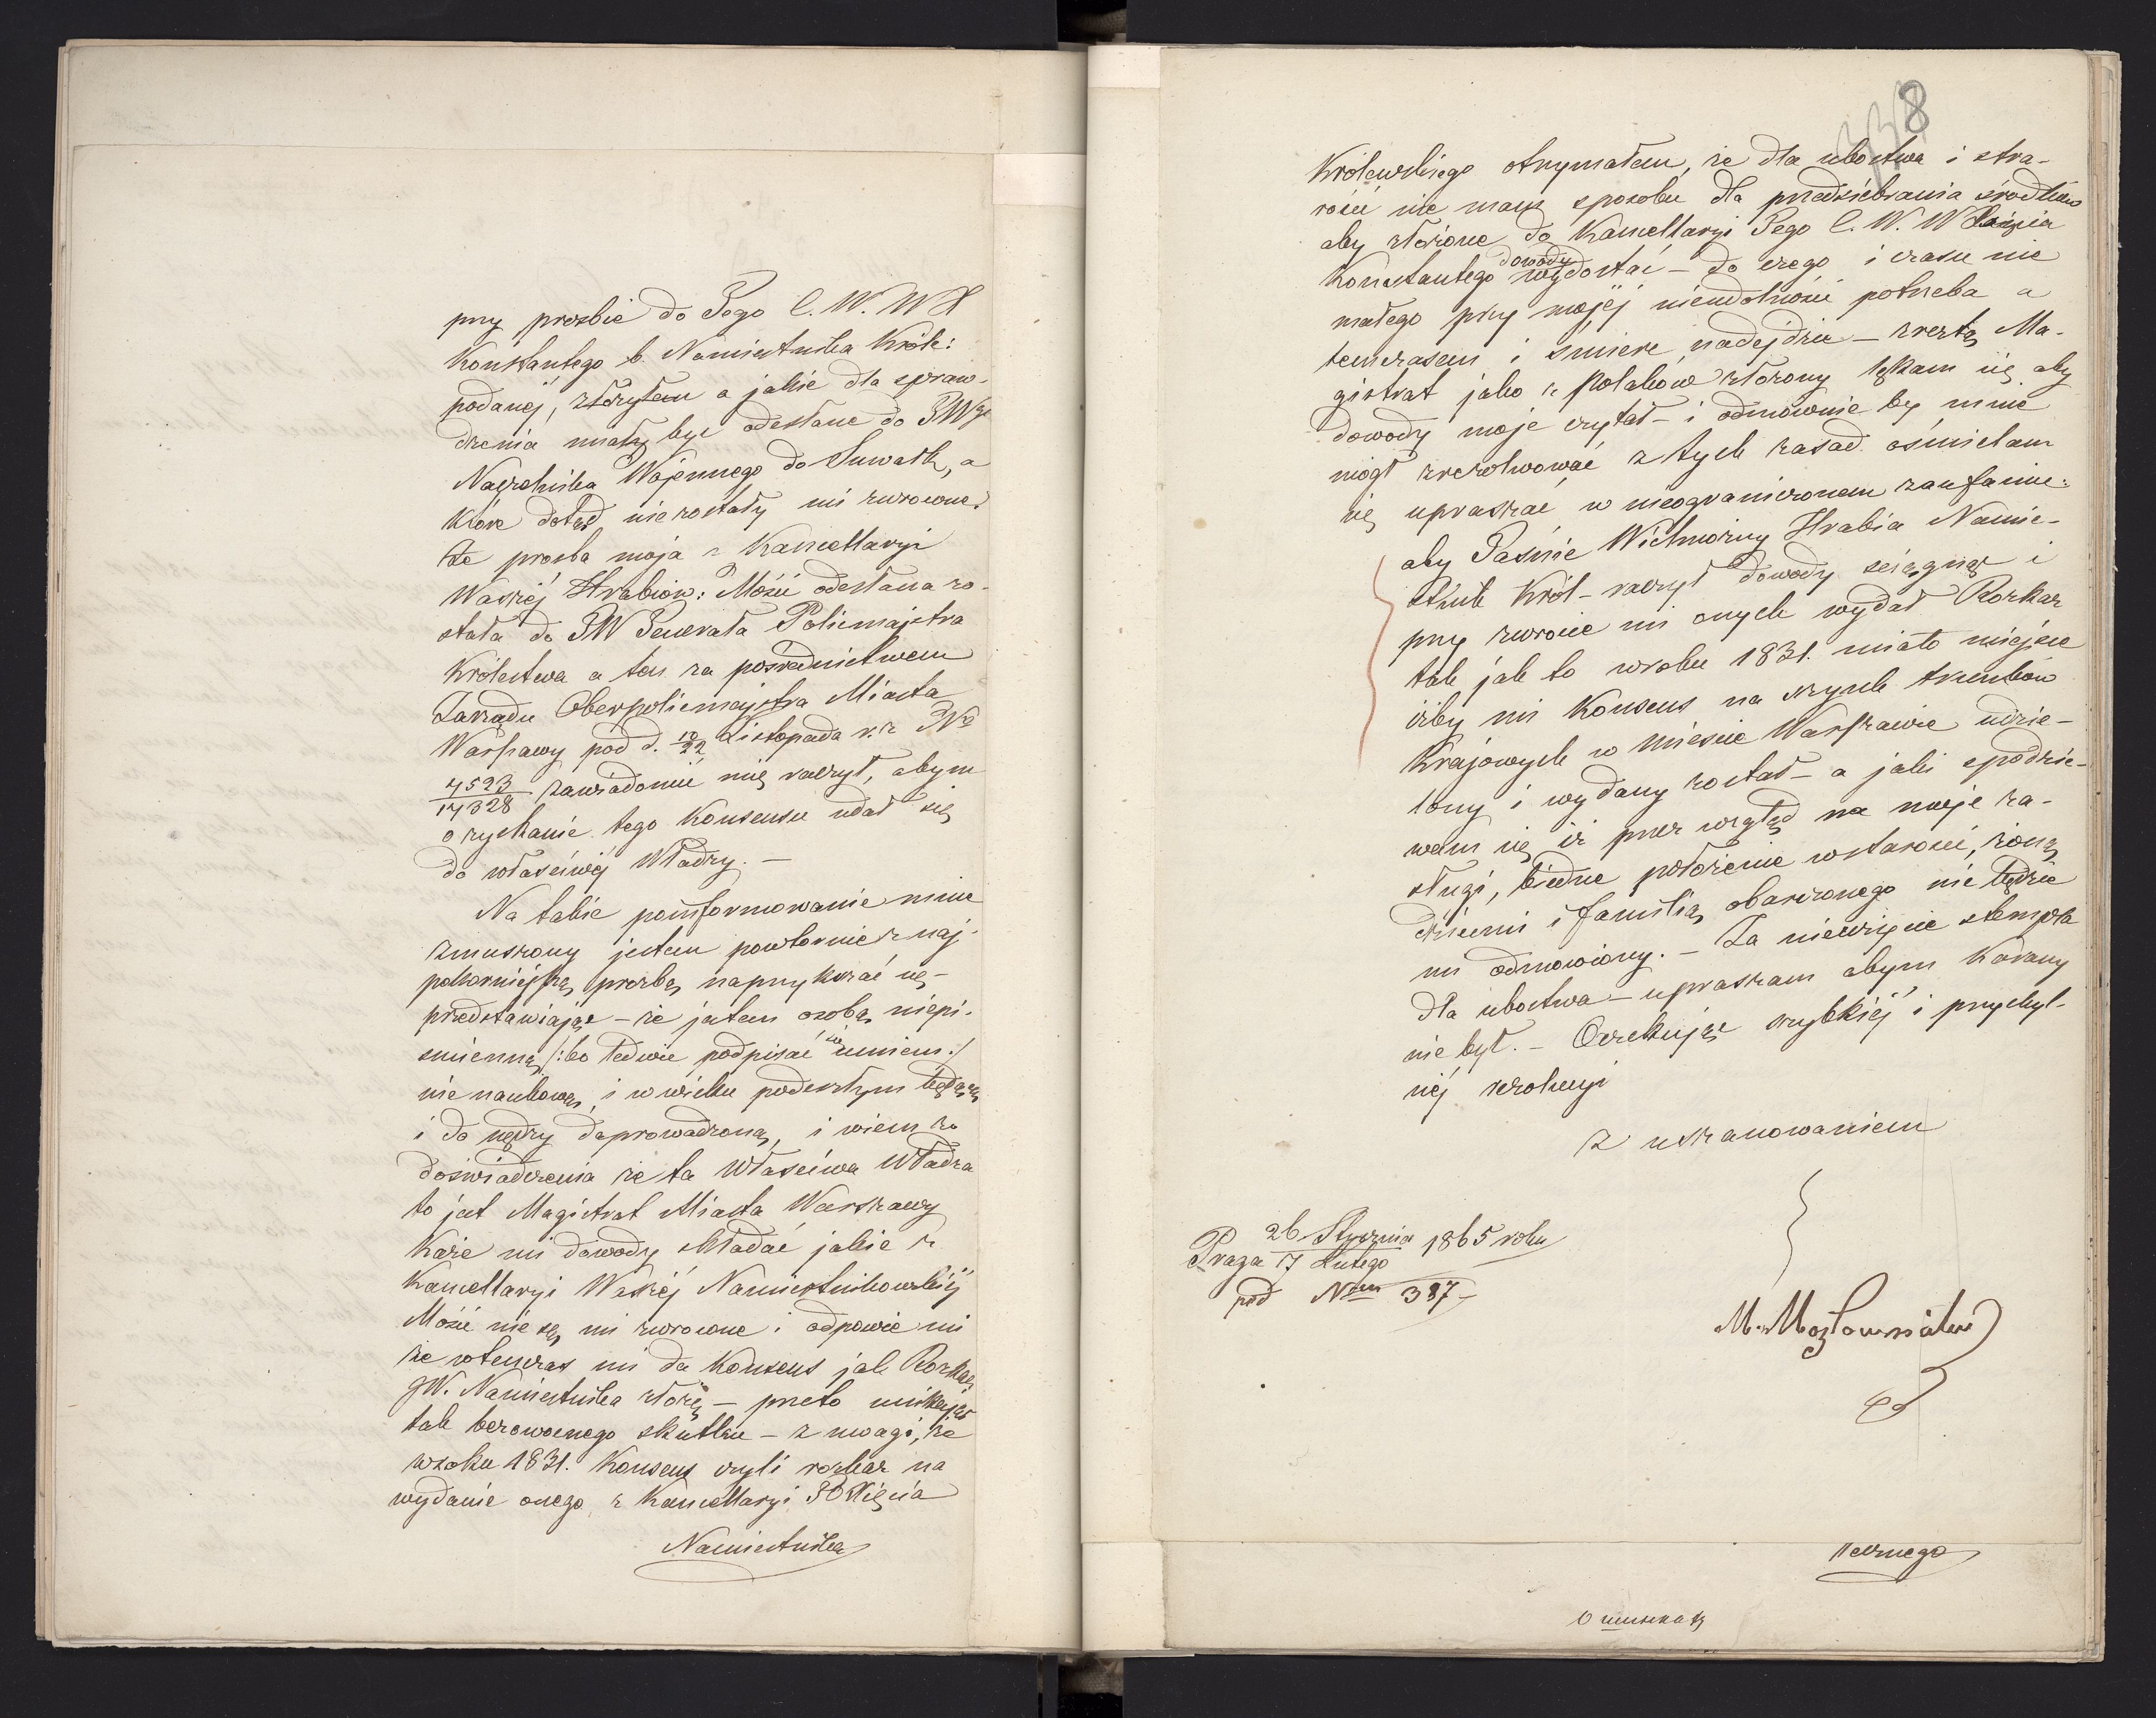 przy prozbie do Jego C. W. W X
Konstantego b. Namiestnika Króle:
podanéj, złożyłem a jakie dla spraw-
dzenia miały być odesłane do JWgo
Naczelnika Wojennego do Suwałk, a
które dotąd nie zostały mi zwrócone.
Że prozba moja z Kancellaryi
Waszéj Hrabiow: Mości odesłana zo-
stała do JW Jenerała Policmajstra
Królestwa a ten za pośrednictwem
Zarządu Oberpolicmajstra Miasta
Warszawy pod d. 10/22 Listopada r. z No
4523/17328 zawiadomić mię raczył, abym
o zyskanie tego Konsensu udał się
do właściwéj Władzy. —
Na takie poinformowanie mnie
zmuszony jestem powtornie z naj-
pokorniejszą prozbą naprzykrzać się —
przedstawiając — że jestem osobą niepi-
smienną /: bo ledwie podpisać się umiem :/
nie naukową, i w wieku podeszłym będącą
i do nędzy doprowadzoną, i wiem z
doświadczenia że ta Właściwa Władza
to jest Magistrat Miasta Warszawy
każe mi dowody składać jakie z
Kancellaryi Waszéj Namiestnikowskiéj
Mości nie są mi zwrócone i odpowie mi
że wtenczas mi da Konsens jak Rozkaz
JW. Namiestnika złożę — przeto unikając
tak bezowocnego skutku — z uwagi, że
w roku 1831. Konsens czyli rozkaz na
wydanie onego z Kancellaryi JO Xięcia
Namiestnika
8
Królewskiego otrzymałem, że dla ubostwa i sta-
rości nie mam sposobu dla przedsiebrania środków
aby złożone do Kancellaryi Jego C. W. W Xięcia
dowody
Konstantego wydostać — do czego i czasu nie
małego przy mojéj nieudolności potrzeba a
temczasem i śmierc nadejdzie — zresztą Ma-
gistrat jako z Polaków złożony lękam się aby
dowody moje czytał — i odmownie by mnie
mógł zrezolwować z tych zasad ośmielam
się upraszać w nieograniczonem zaufaniu:
aby Jaśnie Wielmożny Hrabia Namie-
stnik Król — raczył dowody sciągnąc i
przy zwrocie mi onych wydać Rozkaz
tak jak to w roku 1831. miało miejsce
iżby mi Konsens na szynk trunków
Krajowych w Mieście Warszawie udzie-
lony i wydany został — a jaki spodzie-
wam się iż przez wzgląd na moje za-
sługi, biedne położenie w starości, żoną
dziecmi i familią obarczonego nie będzie
mi odmowiony. — Za nieużycie stempla
dla ubostwa — upraszam abym karany
nie był. — Oczekując szybkiéj i przychyl-
néj rezolucyi
z uszanowaniem
26 Stycznia
Praga 7 Lutego 1865 roku
pod Nrem 387 —
M. Mozłowski